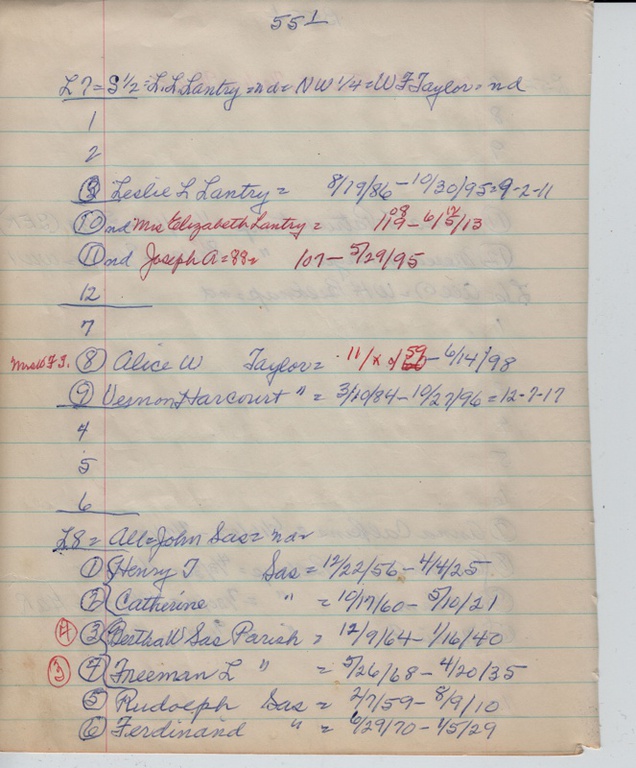 551
L7 = S 1/2 = L.L Lantry = nd = NW 1/4 = W F Taylor = nd
1
2
③ Leslie L Lantry = 8/19/86 – 10/30/95 = 9-2-11
⑩ nd Mrs Elizabeth Lantry = – 6/ /13
⑪ nd Joseph A = 88 = /07 – 5/29/95
12
7
Mrs W F J. ⑧ Alice W Taylor = 11/x/59 – 6/14/98
⑨ Vernon Harcourt " = 3/10/84 – 10/27/96 = 12-7-17
4
5
6
L8 = All = John Sas = nd
① Henry J Sas = 12/22/56 – 4/4/25
② Catherine " = 10/17/60 – 5/10/21
④ ③ Bertha W Sas Parish = 12/9/64 – 1/16/40
③ ④ Freeman L " = 5/26/68 – 4/20/35
⑤ Rudolph Sas = 2/7/59 – 8/9/10
⑥ Ferdinand " = 6/29/70 – 4/5/29